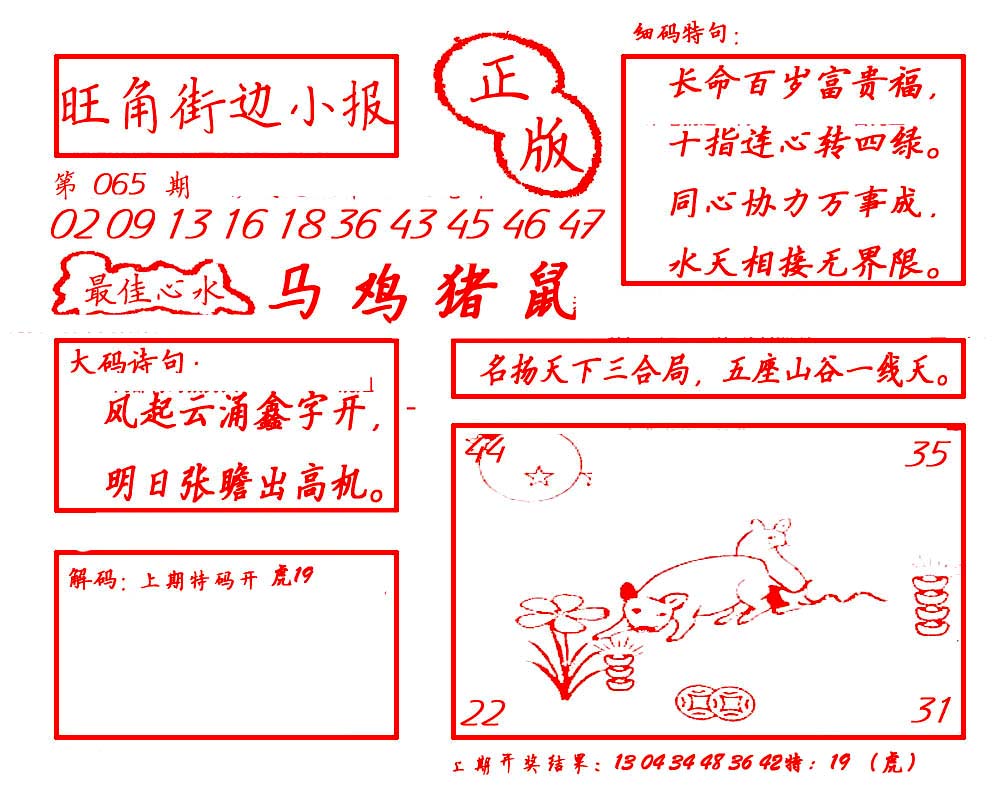 细码特句：
旺角街边小报
正版
长命百岁富贵福，
十指连心转四绿。
同心协力万事成，
水天相接无界限。
第 065 期
02 09 13 16 18 36 43 45 46 47
最佳心水
马 鸡 猪 鼠
大码诗句·
风起云涌鑫字开，
明日张瞻出高机。
名扬天下三合局，五座山谷一线天。
44
35
22
31
解码：上期特码开 虎19
上期开奖结果：13 04 34 48 36 42特：19（虎）